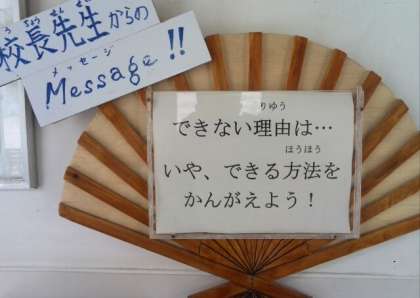 校長先生からの
メッセージ
Message!!
りゆう
できない理由は…
ほうほう
いや、できる方法を
かんがえよう！